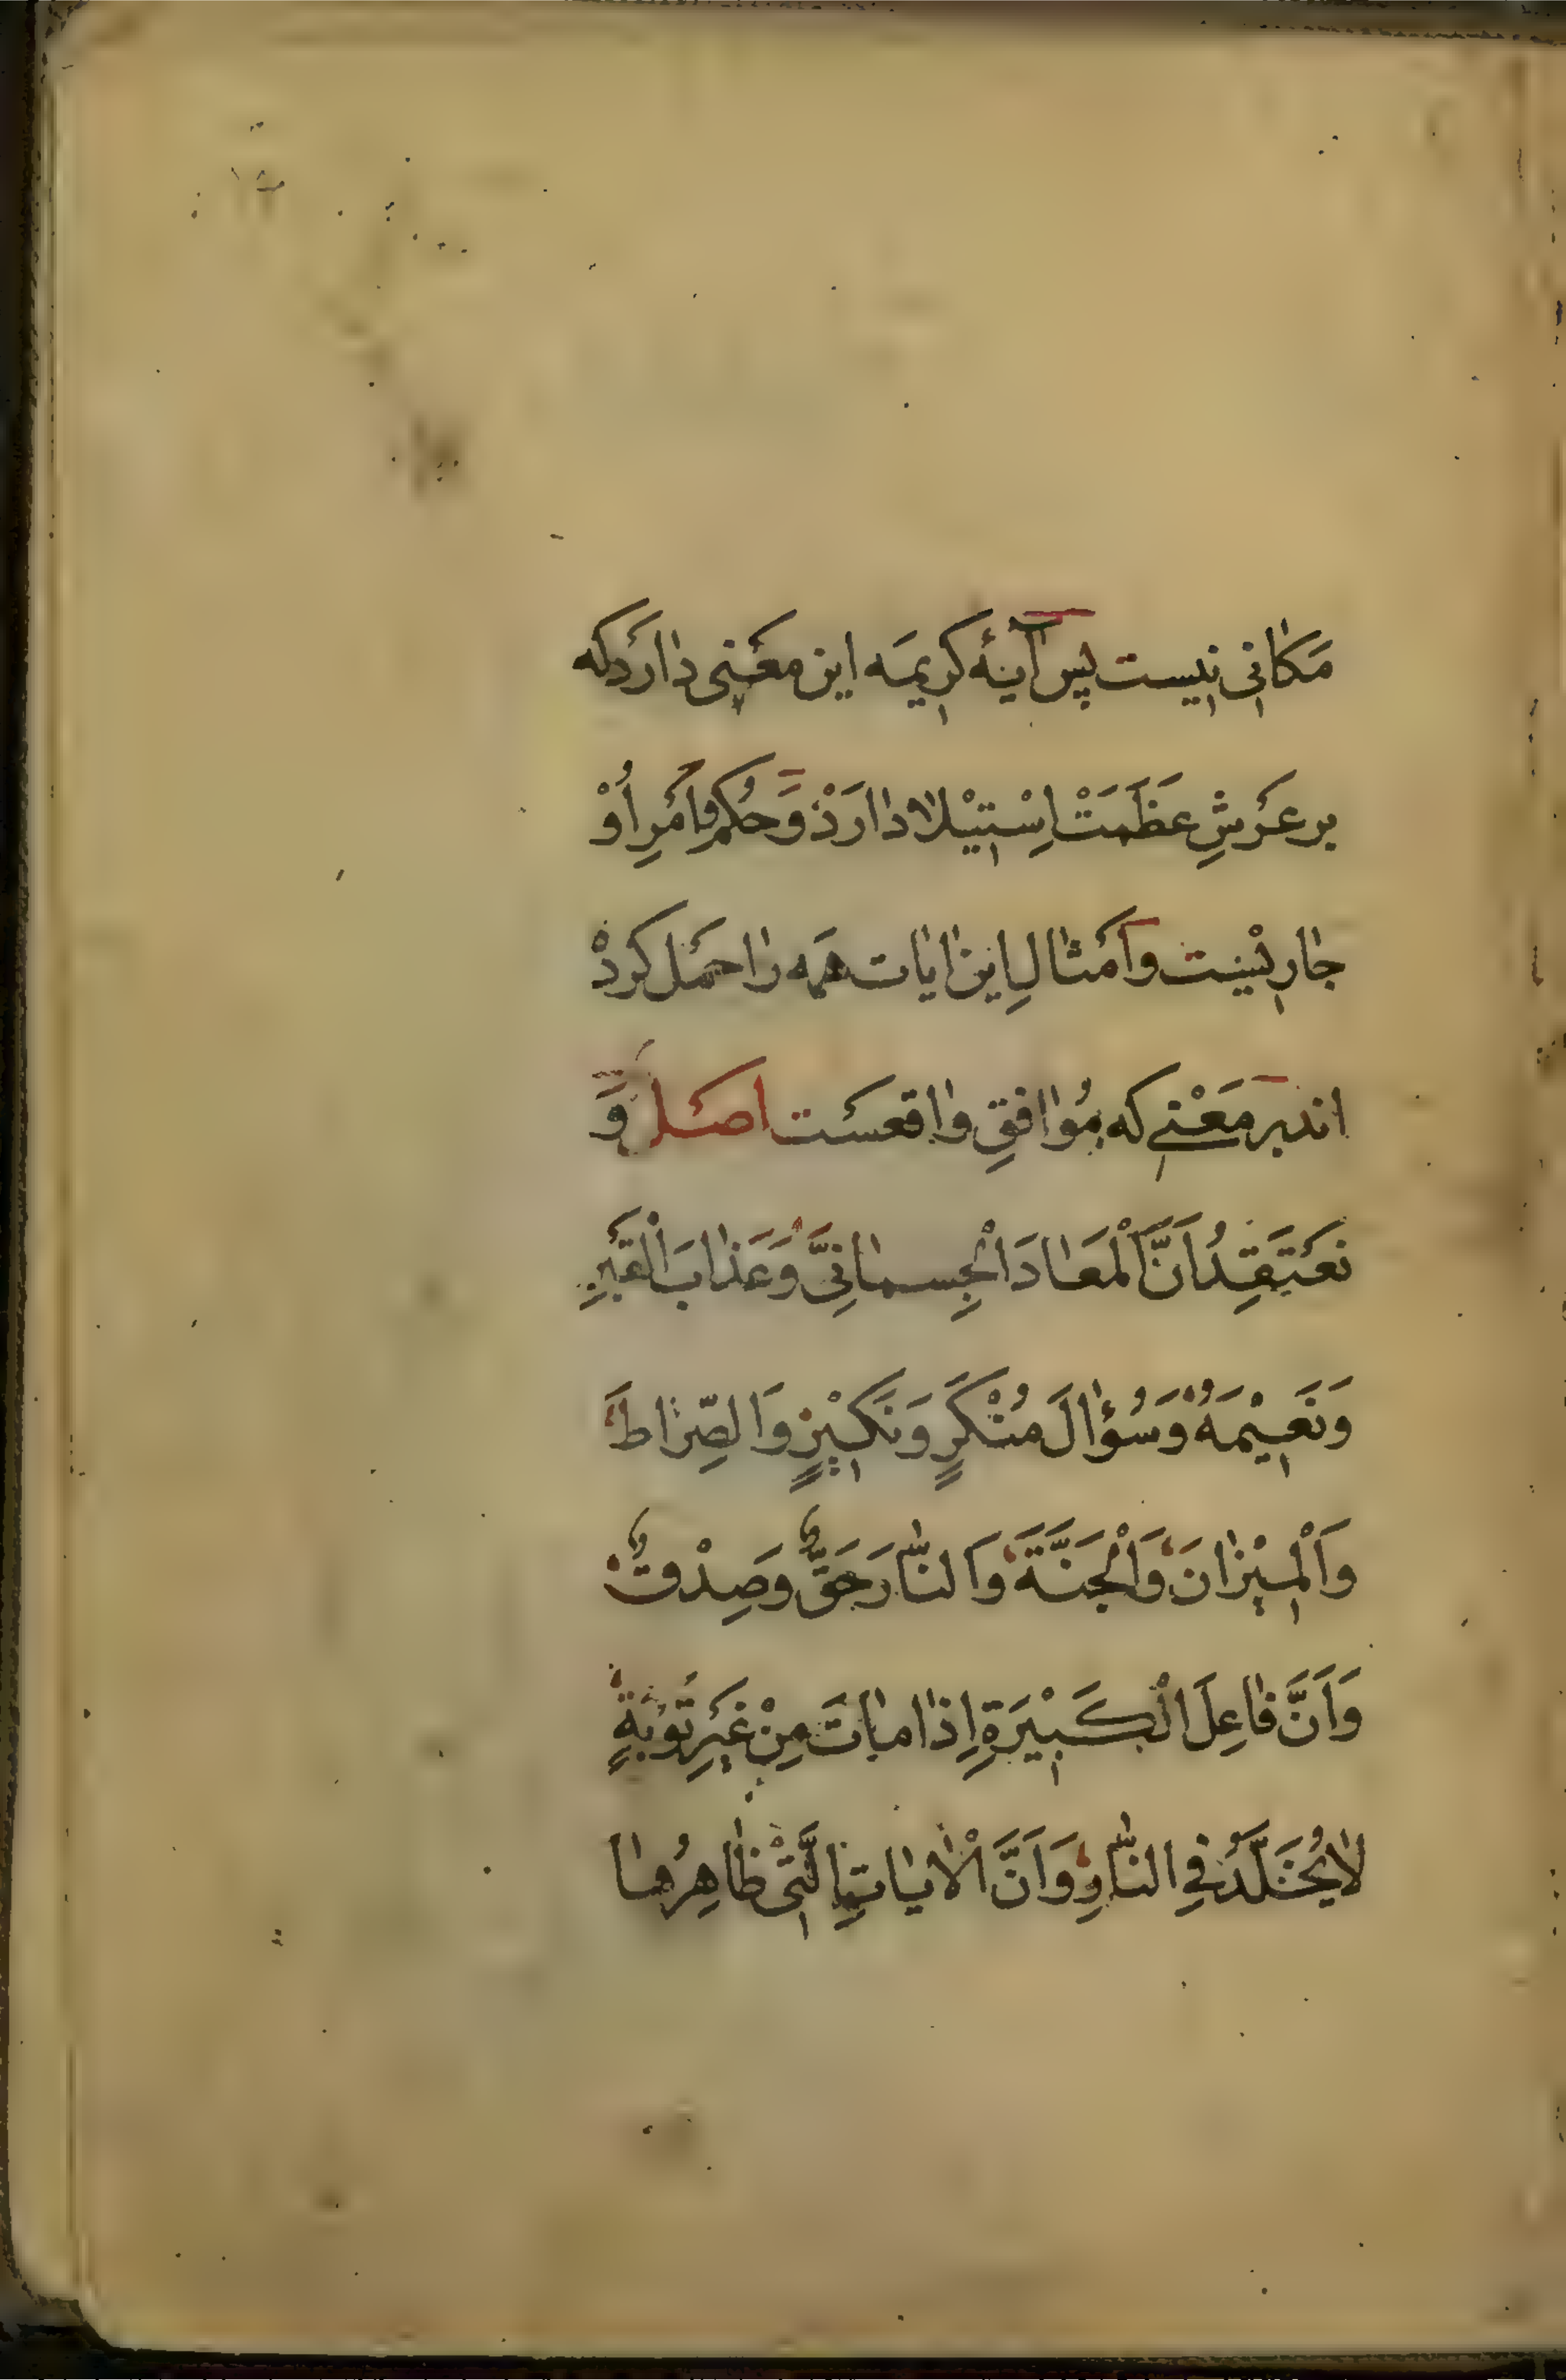 مَکانی نیست پس آیهٔ کریمَه این معنی دارَد که
بر عَرشِ عَظَمَتْ اِسْتیْلاء دارَدْ وَ حُکم و اَمرِ اُوْ
جاریْست و اَمثالِ این ایات همَه را حَمل کردْ
اند بر مَعْنی که مُوافقِ واقعست اصل وَ
نَعتَقِدُ اَنَّ الْمَعادَ الْجِسمانِیَّ وَ عَذابَ الْقَبرِ
وَ نَعیْمَهُ وَ سُؤالَ مُنْکَرٍ وَ نَکیْرٍ وَ الصِّراطَ
وَ الْمیْزانَ وَ الْجَنَّةَ وَ النّارَ حَقٌّ وَ صِدْقٌ
وَ اَنَّ فاعِلَ الْکَبیْرَةِ اِذا ماتَ مِنْ غَیرِ تَوْبَةٍ
لا یُخَلَّدُ فِی النّارِ وَ اَنَّ الْایاتِ الَّتیْ ظاهِرُها